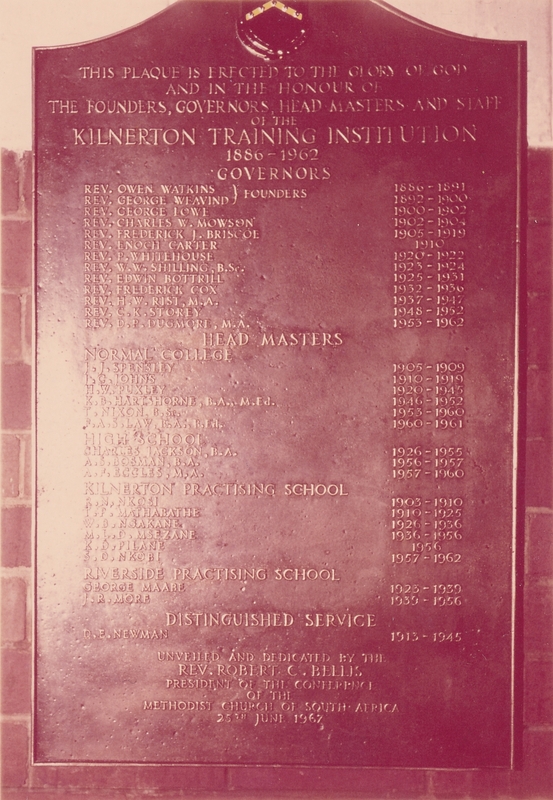 THIS PLAQUE IS ERECTED TO THE GLORY OF GOD
AND IN THE HONOUR OF
THE FOUNDERS, GOVERNORS, HEAD MASTERS AND STAFF
OF THE
KILNERTON TRAINING INSTITUTION
1886-1962
GOVERNORS
REV. OWEN WATKINS } FOUNDERS 1886-1891
REV. GEORGE WEAVIND 1892-1900
REV. GEORGE LOWE 1900-1902
REV. CHARLES W. MOWSON 1902-1904
REV. FREDERICK J. BRISCOE 1905-1919
REV. ENOCH CARTER 1910
REV. P. WHITEHOUSE 1920-1922
REV. W. W. SHILLING, B.Sc. 1923-1924
REV. EDWIN BOTTRILL 1925-1931
REV. FREDERICK COX 1932-1936
REV. H. W. RIST, M.A. 1937-1947
REV. C. K. STOREY 1948-1952
REV. D. P. DUGMORE, M.A. 1953-1962
HEAD MASTERS
NORMAL COLLEGE
J. J. SPENSLEY 1905-1909
J. G. JOHNS 1910-1919
H. W. PUXLEY 1920-1945
K. B. HARTSHORNE, B.A., M.Ed. 1946-1952
NIXON, B.Sc. 1953-1960
LAW, B.A., B.Ed. 1960-1961
HIGH SCHOOL
CHARLES JACKSON, B.A. 1926-1955
A. B. BOSMAN, B.A. 1956-1957
ECCLES, M.A. 1957-1960
KILNERTON PRACTISING SCHOOL
NKOSI 1903-1910
MATHABATHE 1910-1925
W. B. NGAKANE 1926-1936
MSEZANE 1936-1956
PILANE 1956
S. B. NKOBI 1957-1962
RIVERSIDE PRACTISING SCHOOL
GEORGE MAABE 1923-1939
J. R. MORE 1939-1956
DISTINGUISHED SERVICE
D. E. NEWMAN 1913-1945
UNVEILED AND DEDICATED BY THE
REV. ROBERT C. BELLIS
PRESIDENT OF THE CONFERENCE
OF THE
METHODIST CHURCH OF SOUTH AFRICA
25TH JUNE 1967